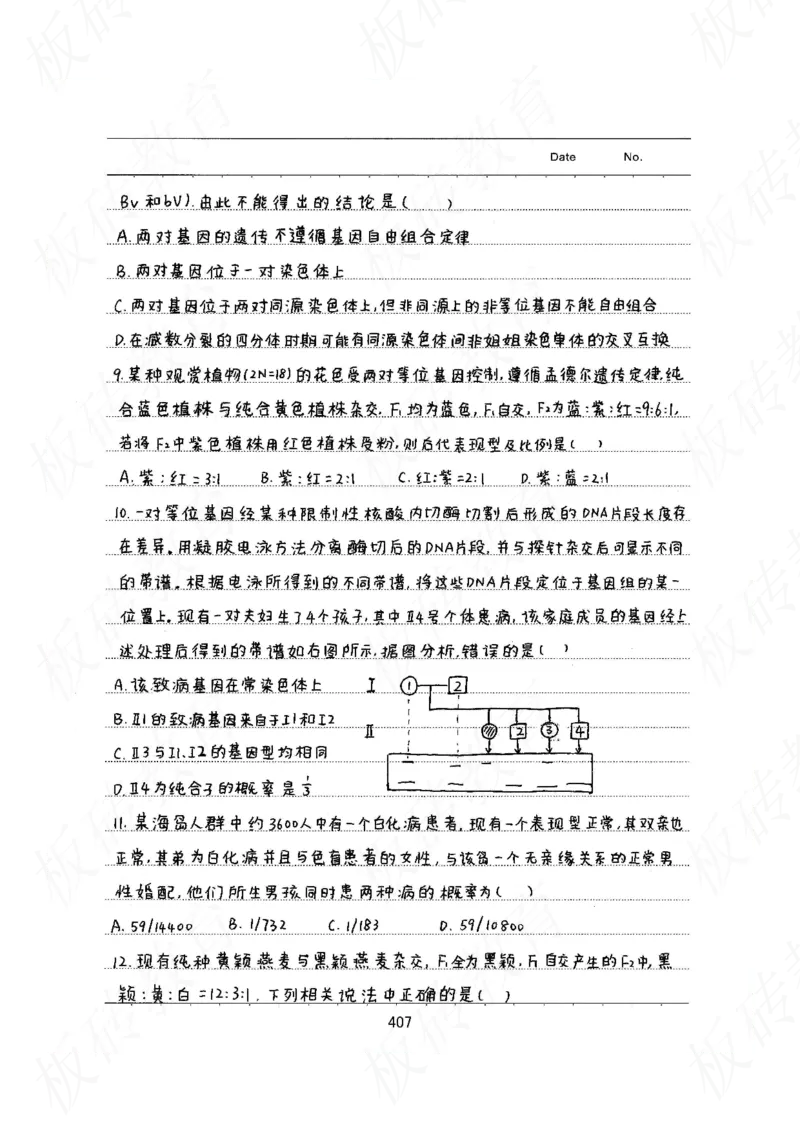 Date No.
Bv和bV).由此不能得出的结论是( )
A.两对基因的遗传不遵循基因自由组合定律
B.两对基因位于一对染色体上
C.两对基因位于两对同源染色体上,但非同源上的非等位基因不能自由组合
D.在减数分裂的四分体时期可能有同源染色体间非姐姐染色单体的交叉互换
9.某种观赏植物(2N=18)的花色受两对等位基因控制,遵循孟德尔遗传定律,纯
合蓝色植株与纯合黄色植株杂交,F₁均为蓝色,F₁自交,F₂为蓝:紫:红=9:6:1,
若将F₂中紫色植株用红色植株受粉,则后代表现型及比例是( )
A.紫:红=3:1 B.紫:红=2:1 C.红:紫=2:1 D.紫:蓝=2:1
10.一对等位基因经某种限制性核酸内切酶切割后形成的DNA片段长度存
在差异。用凝胶电泳方法分离酶切后的DNA片段,并与探针杂交后可显示不同
的带谱。根据电泳所得到的不同带谱,将这些DNA片段定位于基因组的某一
位置上。现有一对夫妇生了4个孩子,其中Ⅱ4号个体患病,该家庭成员的基因经上
述处理后得到的带谱如右图所示,据图分析,错误的是( )
A.该致病基因在常染色体上
Ⅰ 1 2
B.Ⅱ1的致病基因来自于Ⅰ1和Ⅰ2
Ⅱ 2 3 4
C.Ⅱ3与Ⅰ1、Ⅰ2的基因型均相同
D.Ⅱ4为纯合子的概率是1/3
11.某海岛人群中约3600人中有一个白化病患者,现有一个表现型正常,其双亲也
正常,其弟为白化病并且与色盲患者的女性,与该岛一个无亲缘关系的正常男
性婚配,他们所生男孩同时患两种病的概率为( )
A.59/14400 B.1/732 C.1/183 D.59/10800
12.现有纯种黄颖燕麦与黑颖燕麦杂交,F₁全为黑颖,F₁自交产生的F₂中,黑
颖:黄:白=12:3:1.下列相关说法中正确的是( )
407
板砖教育